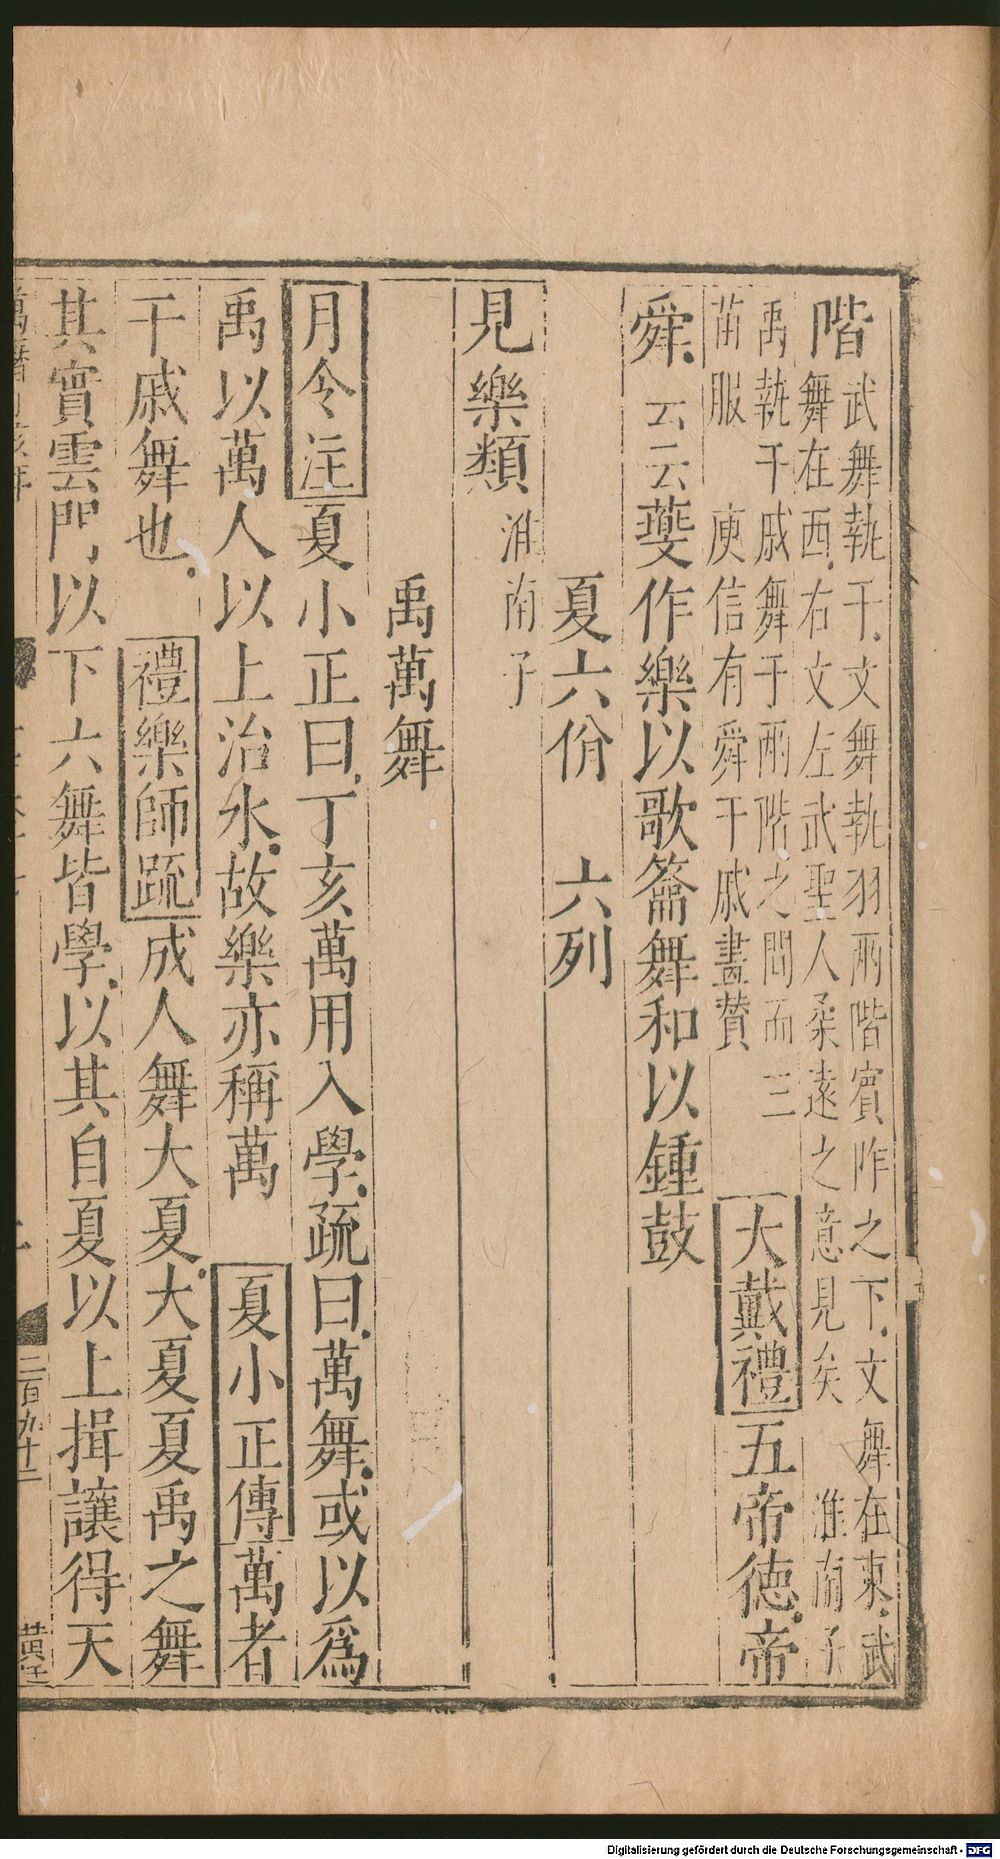 階武舞執干文舞執羽兩階賓阼之下文舞在東武
舞在西右文左武聖人柔遠之意見矣 淮南子
禹執干戚舞于兩階之間而三
苗服 庾信有舜干戚畫贊 大戴禮五帝德帝
舜云云夔作樂以歌籥舞和以鍾鼓
夏六佾 六列
見樂類 淮南子
禹萬舞
月令注夏小正曰丁亥萬用入學疏曰萬舞或以爲
禹以萬人以上治水故樂亦稱萬 夏小正傳萬者
干戚舞也 禮樂師疏成人舞大夏大夏夏禹之舞
其實雲門以下六舞皆學以其自夏以上揖讓得天
二百九十二
Digitalisierung gefördert durch die Deutsche Forschungsgemeinschaft - DFG